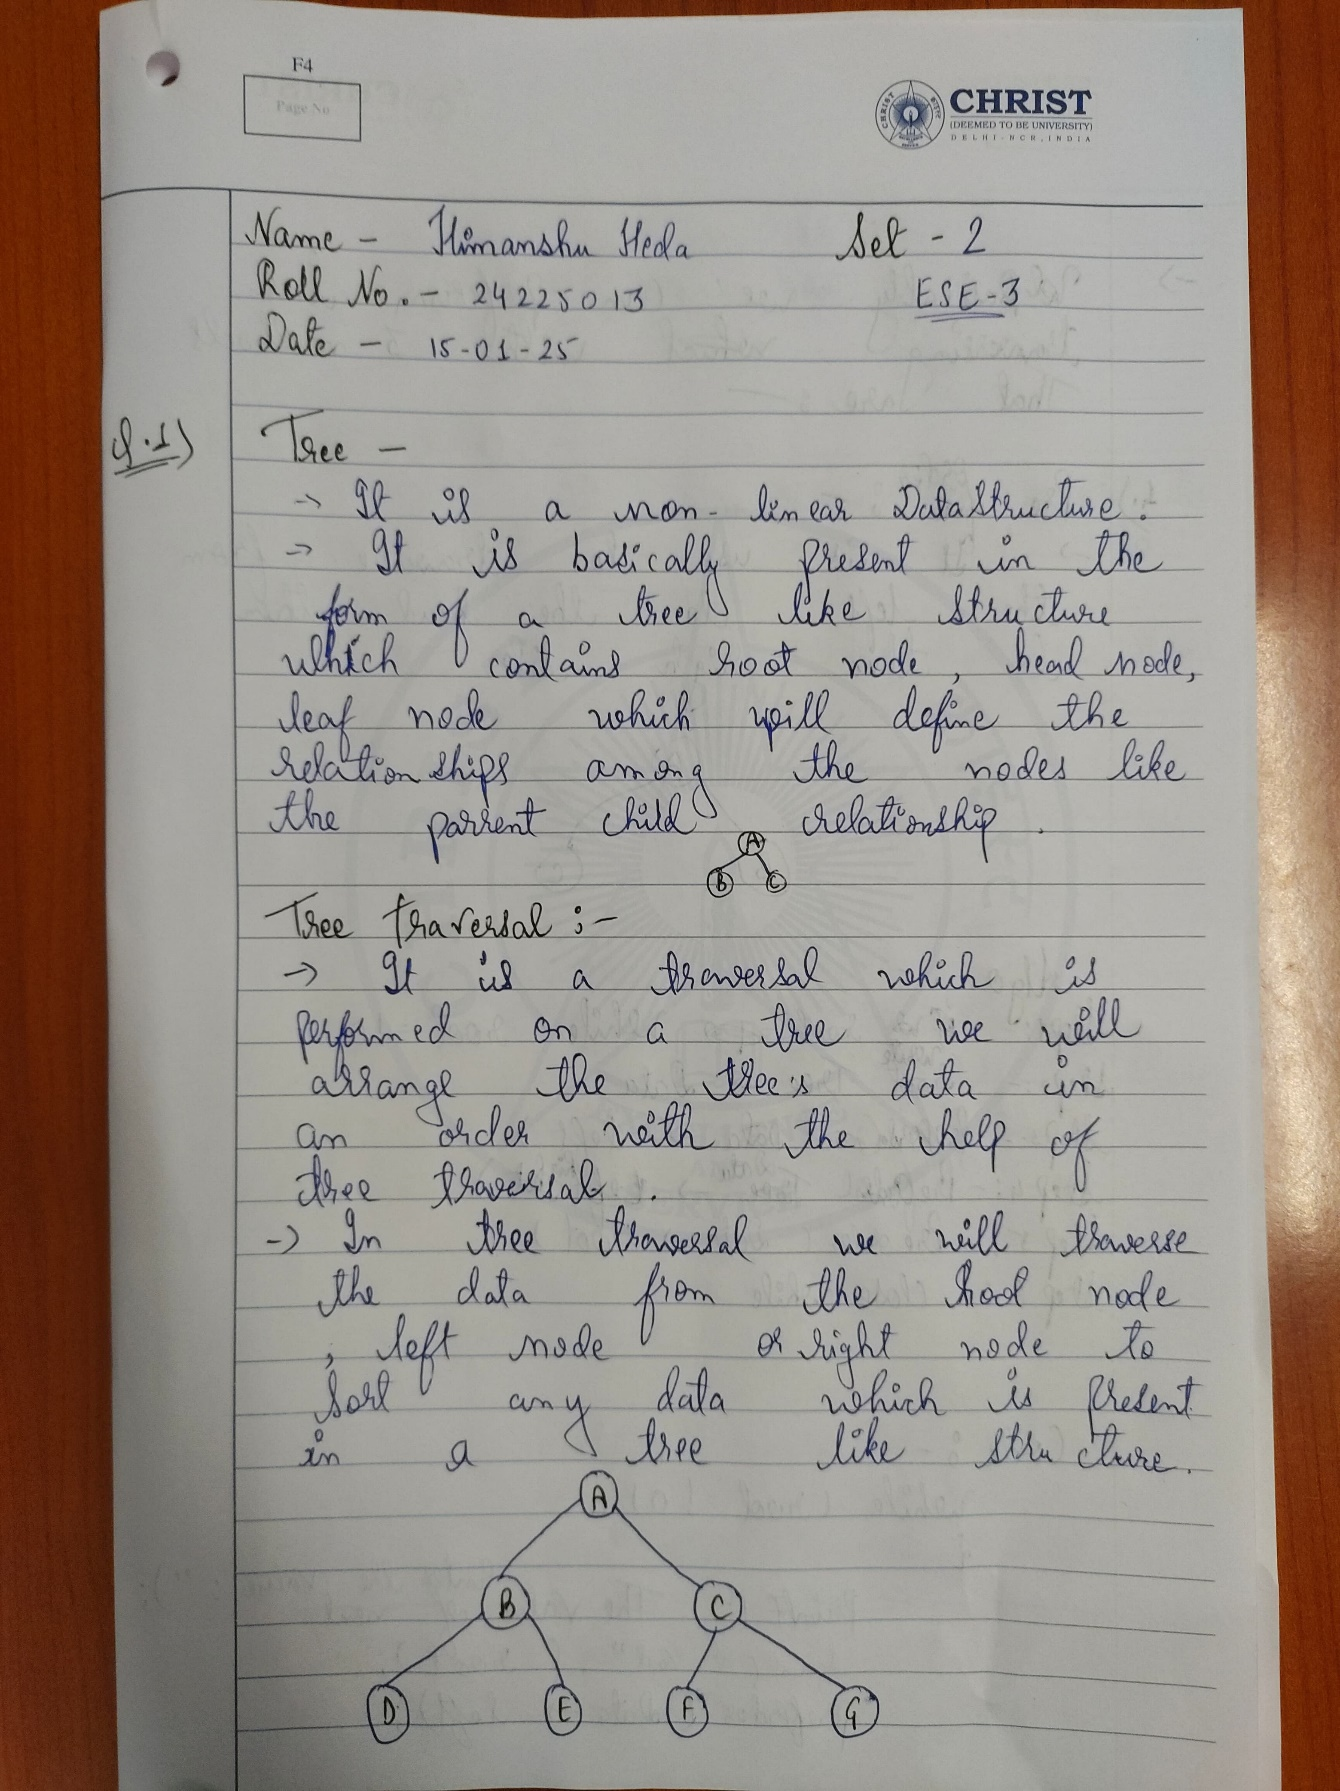 F4
Page No
CHRIST
(DEEMED TO BE UNIVERSITY)
DELHI-NCR, INDIA
Name - Himanshu Heda Set - 2
Roll No. - 24225013 ESE-3
Date - 15-01-25
Q.1) Tree -
-> It is a non- linear DataStructure.
-> It is basically present in the
form of a tree like structure
which contains root node, head node,
leaf node which will define the
relationships among the nodes like
the parrent child relationship.
A
B C
Tree traversal :-
-> It is a traversal which is
performed on a tree we will
arrange the tree's data in
an order with the help of
tree traversal.
-> In tree traversal we will traverse
the data from the root node
, left node or right node to
sort any data which is present
in a tree like structure.
A
B C
D E F G